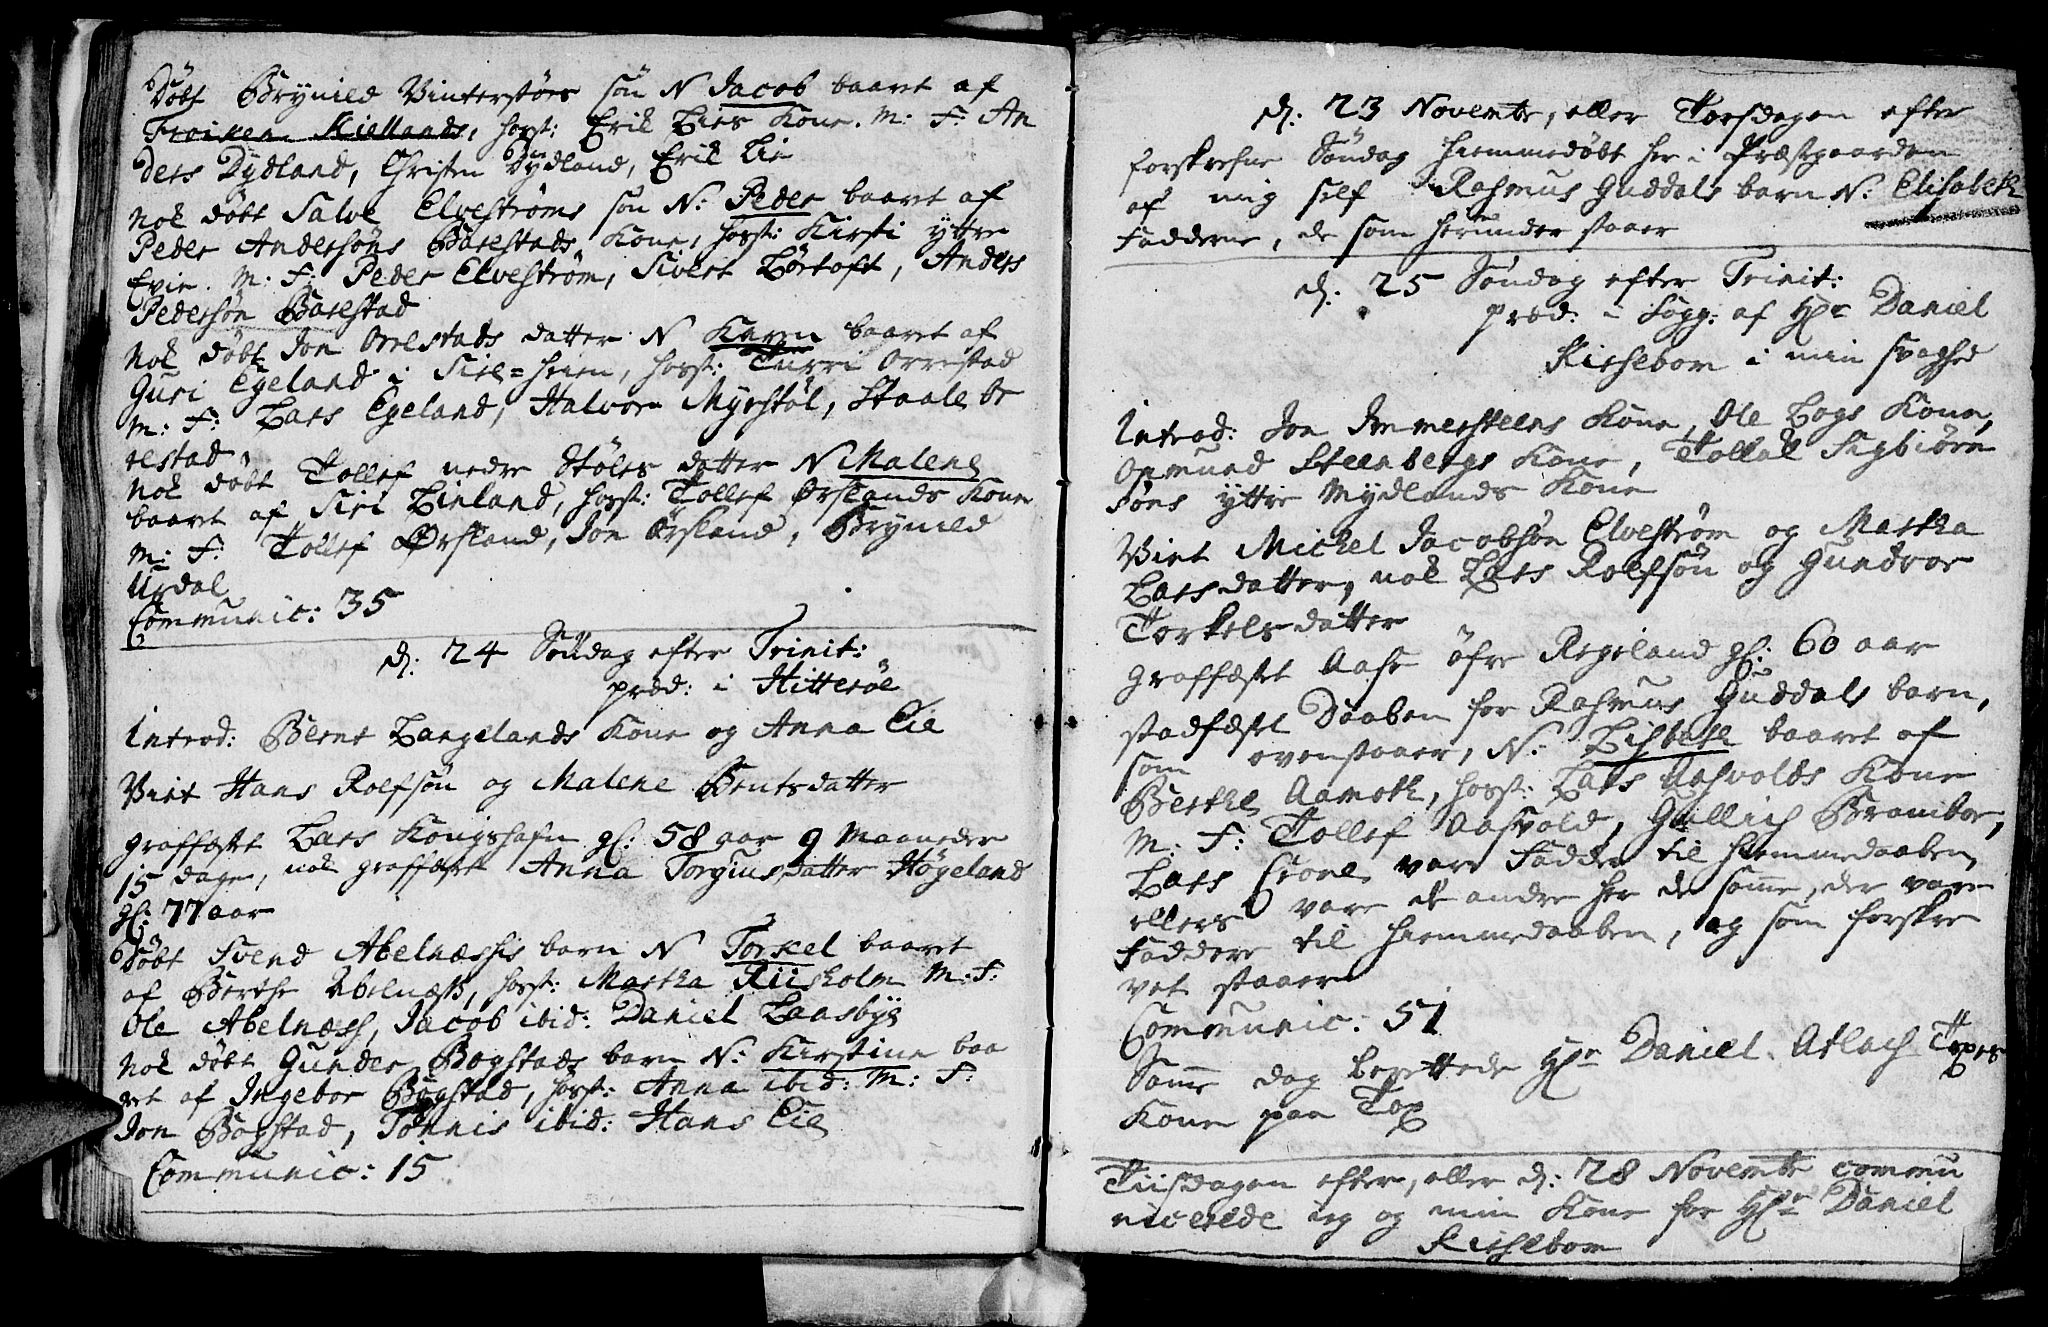 Døbt Brynild Vinterstøes søn N Jacob baaret af
Froiken Kiellands, hosst: Erik Lies Kone. M: F: An
ders Dydland, Christen Dydland, Erik Lie
nok døbt Salve Elvestrøms søn N: Peder baaret af
Peder Andersøns Barstads Kone, hosst: Kirsti yttre
Evie. M: F: Peder Elvestrøm, Sivert Lørtoft, Anders
Pedersøn Barstad
nok døbt Jon Orrestads datter N Karen baaret af
Guri Egeland i Sire=heien, hosst: Turri Orrestad
M: F: Lars Egeland, Halvor Myrstøl, Staale Or
restad.
nok døbt Tollef nedre Støles datter N Malene
baaret af Siri Linland, hosst: Tollef Ørslands Kone
M: F: Tollef Ørsland, Jon Ørsland, Brynild
Urdal
Communic: 35
d: 24 Søndag efter Trinit:
præd: i Hitterøe
Introd: Bernt Langelands Kone og Anna Eie
Viet Hans Rolfsøn og Malene Bentsdatter
graffæstet Lars Kongshafn gl: 58 aar 9 Maaneder
15 dage, nok graffæstet Anna Torgiusdatter Høgeland
gl: 77 aar
Døbt Svend Abelnæsses barn N Torkel baaret
af Berthe Abelnæss, hosst: Martha Riisholm M: F:
Ole Abelnæss, Jacob ibid: Daniel Laasbye
nok døbt Gunder Bogstads barn N: Kirstine baa
ret af Ingebor Bogstad, hosst: Anna ibid: M: F:
Jon Bogstad, Tønnis ibid: Hans Eie
Communic: 15
d: 23 Novembr, eller Torsdagen efter
forskrefne Søndag hiemmedøbt her i Præstgaarden
af mig self Rasmus Guddals barn N: Elisabeth
Fadderne, de som herunder staaer
d: 25 Søndag efter Trinit:
præd: i Sogg: af Hr Daniel
Kirsebom i min svaghed
Introd: Jon Immersteens Kone, Ole Logs Kone,
Omund Steenbergs Kone, Tollak Sigbiørn
søns yttre Mydlands Kone
Viet Michel Jacobsøn Elvestrøm og Martha
Larsdatter, nok Lars Rolfsøn og Gundvor
Torkelsdatter
graffæstet Aase øfre Regeland gl: 60 aar
stadfæstet Daaben for Rasmus Guddals barn,
som ovenstaaer, N: Lisbeth baaret af
Berthe Aamoth, hosst: Lars Aasvolds Kone
M: F: Tollef Aasvold, Gullich Brambor,
Lars Crone var Fadder til hiemmedaaben,
ellers vare de andre her de samme, der vare
Faddere til hiemmedaaben, og som forskre
vet staaer
Communic: 51
Samme dag berettede Hr Daniel Atlach Toxes
Kone paa Tox
Tiisdagen efter, eller d: 28 Novembr commu
nicerede ieg og min Kone for Hr Daniel
Kirsebom